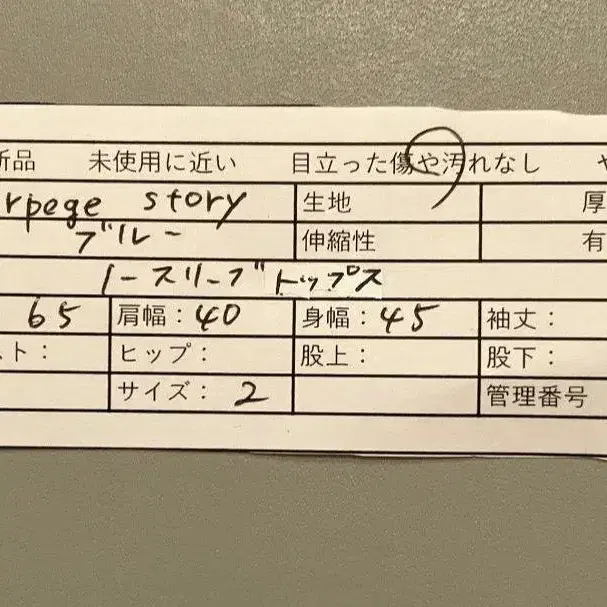 新品 未使用に近い 目立った傷や汚れなし
rpege story 生地 厚
ブルー 伸縮性 有
ノースリーブトップス
65 肩幅：40 身幅：45 袖丈：
スト： ヒップ： 股上： 股下：
サイズ： 2 管理番号